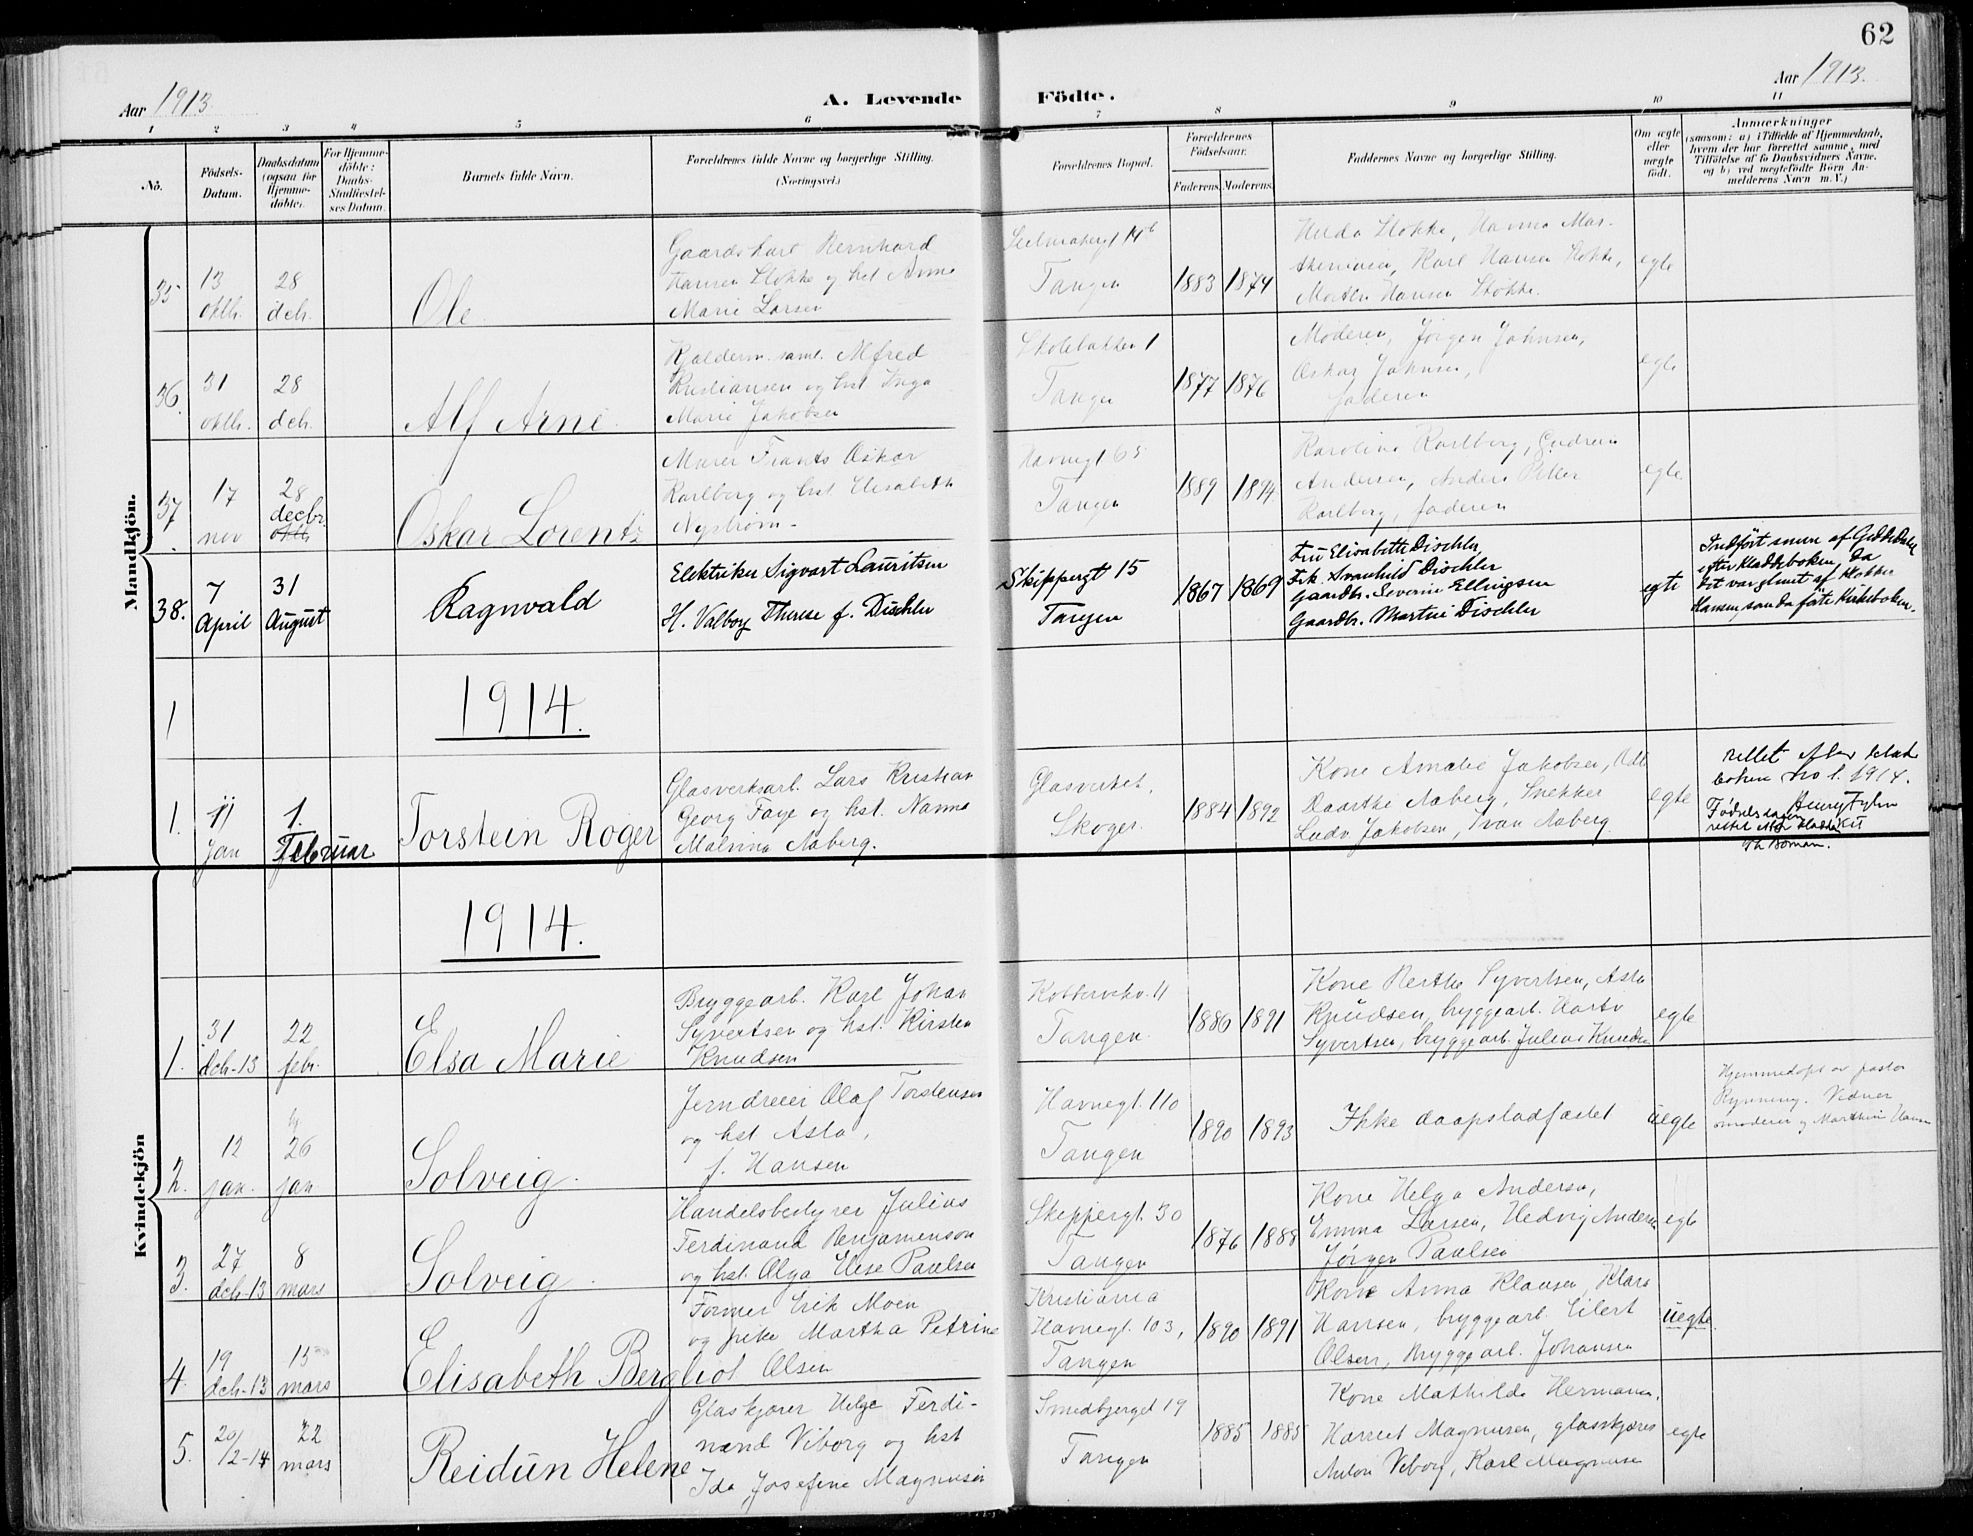 62
Aar 1913.
A. Levende Födte.
Aar 1913.
1 2 3 4 5 6 7 8 9 10 11
No.
Födsels-
Datum.
Daabsdatum
(ogsaa for
Hjemme-
døbte).
For Hjemme-
döbte:
Daabs-
Stadfæstel-
ses Datum.
Barnets fulde Navn.
Forældrenes fulde Navne og borgerlige Stilling.
(Næringsvei.)
Forældrenes Bopæl.
Forældrenes
Födselsaar.
Faderens. Moderens.
Faddernes Navne og borgerlige Stilling.
Om ægte
eller
uægte
født.
Anmærkninger
(saasom: a) i Tilfælde af Hjemmedaab,
hvem der har forrettet samme, med
Tilföielse af to Daabsvidners Navne,
og b) ved uægtefödte Börn An-
melderens Navn m. V.)
Mandkjön.
35
13
oktb.
28
dcb.
Ole
Gaardskarl Bernhard
Hansen Stokke og hst Anna
Marie Larsen
Tangen
1883
1874
Hilda Stokke, Hanna Mar-
Karl Hansen Stokke,
Morten Hansen Stokke.
egte
36.
31
oktb.
28
dcb.
Alf Arne.
Alfred
Kristiansen og hst Inga
Marie Jakobsen
Skolebakken 1
Tangen
1877
1876
Moderen, Jørgen Johnsen,
Oskar Johnsen,
faderen
egte
37.
17
nov
28
decbr.
oktb
Oskar Lorentz
Murer Frants Oskar
Karlberg og hst Elisabeth
Nystrøm
Havnegt 65
Tangen
1889
1894
Karoline Karlberg, Gudrun
Andersen, Anders Petter
Karlberg, faderen
egte
38.
7
April
31
August
Ragnvald
Elektriker Sigvart Lauritsen
H. Valborg Therese f. Dischler
Skippergt 15
Tangen
1867
1869
Fru Elisabeth Dischler,
Frk. Svanhild Dischler
Gaardbr. Severin Ellingsen
Gaardbr. Martin Dischler
egte
Indført
efter Kladdeboken, da
det var glemt af klokker
Hansen, som da førte Kirkeboken.
1
1914.
1.
11
jan
1.
Februar
Torstein Roger
Glasverksarb. Lars Kristian
Georg Faye og hst. Nanna
Malvina Aaberg.
Glasverket,
Skoger.
1884
1892
Kone Amalie Jakobsen,
Aaberg, Snekker
Ludv Jakobsen, Ivan Aaberg
egte
rettet efter kladde
boken no 1. 1914.
Fødselsdagen
Th Boman.
Kvindekjön
1914.
1.
31
dcb-13
22
febr.
Elsa Marie
Bryggearb. Karl Johan
Syvertsen og hst. Kirsten
Knudsen
Tangen.
1886
1891
Kone Berthe Syvertsen, Asta
Knudsen, bryggearb.
Syvertsen, bryggearb. Julius Knudsen
egte
2.
12
jan.
26
jan
Solveig.
Jerndreier Olaf Torstensen
og hst Asta,
f. Hansen
Havnegt. 110
Tangen
1890
1893
Ikke daapstadfæstet
uegte
Hjemmedøpt av pastor
Rynning. Vidner
Hansen
3.
27
dcb-13
8
mars
Solveig.
Handelsbestyrer Julius
Ferdinand Benjaminson
og hst. Olga Elise Paulsen
Skippergt. 30
Tangen
1876
1888
Kone Helga Andersen,
Emma Larsen, Hedvig Andersen
Jørgen Paulsen
egte
4.
19
dcb-13
15
mars
Elisabeth Bergliot
Former Erik Moen
og pike Martha Petrine
Olsen
Kristiania
Havnegt. 103,
Tangen
1890
1891
Kone Anna Klausen, Klara
Hansen, bryggearb. Eilert
Olsen, bryggearb. Johansen
uegte.
5.
20
12-14
22
mars
Reidun Helene
Glaskjører Helge Ferdi-
nand Viborg og hst
Ida Josefine Magnusen
Smedbjerget 19
Tangen
1885
1885
Kone Mathilde Hermann,
Harriet Magnusen, glasskjører
Anton Viborg, Karl Magnusen
egte